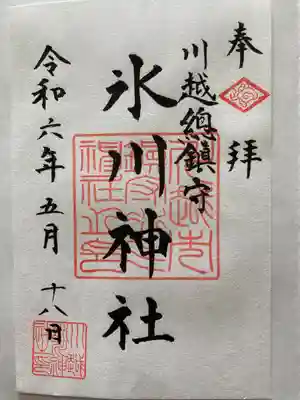 奉拝
川越總鎮守
氷川神社
令和六年五月十八日